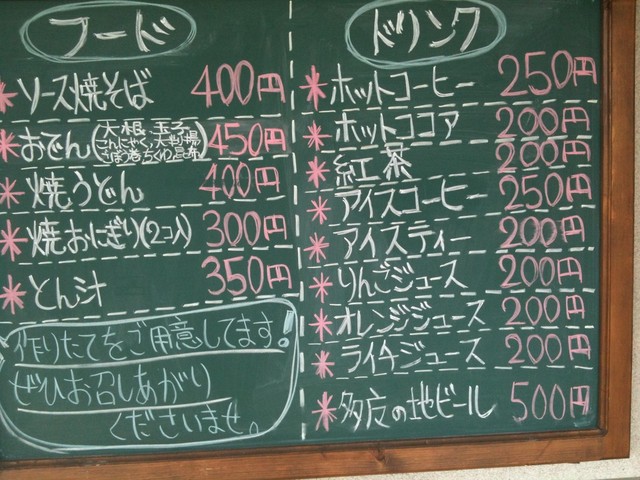 フード
ソース焼そば 400円
おでん(大根 玉子 こんにゃく,大判揚 ごぼう巻ちくわ昆布) 450円
焼うどん 400円
焼おにぎり(2コ入) 300円
とん汁 350円
作りたてをご用意してます!
ぜひお召しあがり
くださいませ。
ドリンク
ホットコーヒー 250円
ホットココア 200円
紅茶 200円
アイスコーヒー 250円
アイスティー 200円
りんごジュース 200円
オレンジジュース 200円
ライチジュース 200円
多度の地ビール 500円